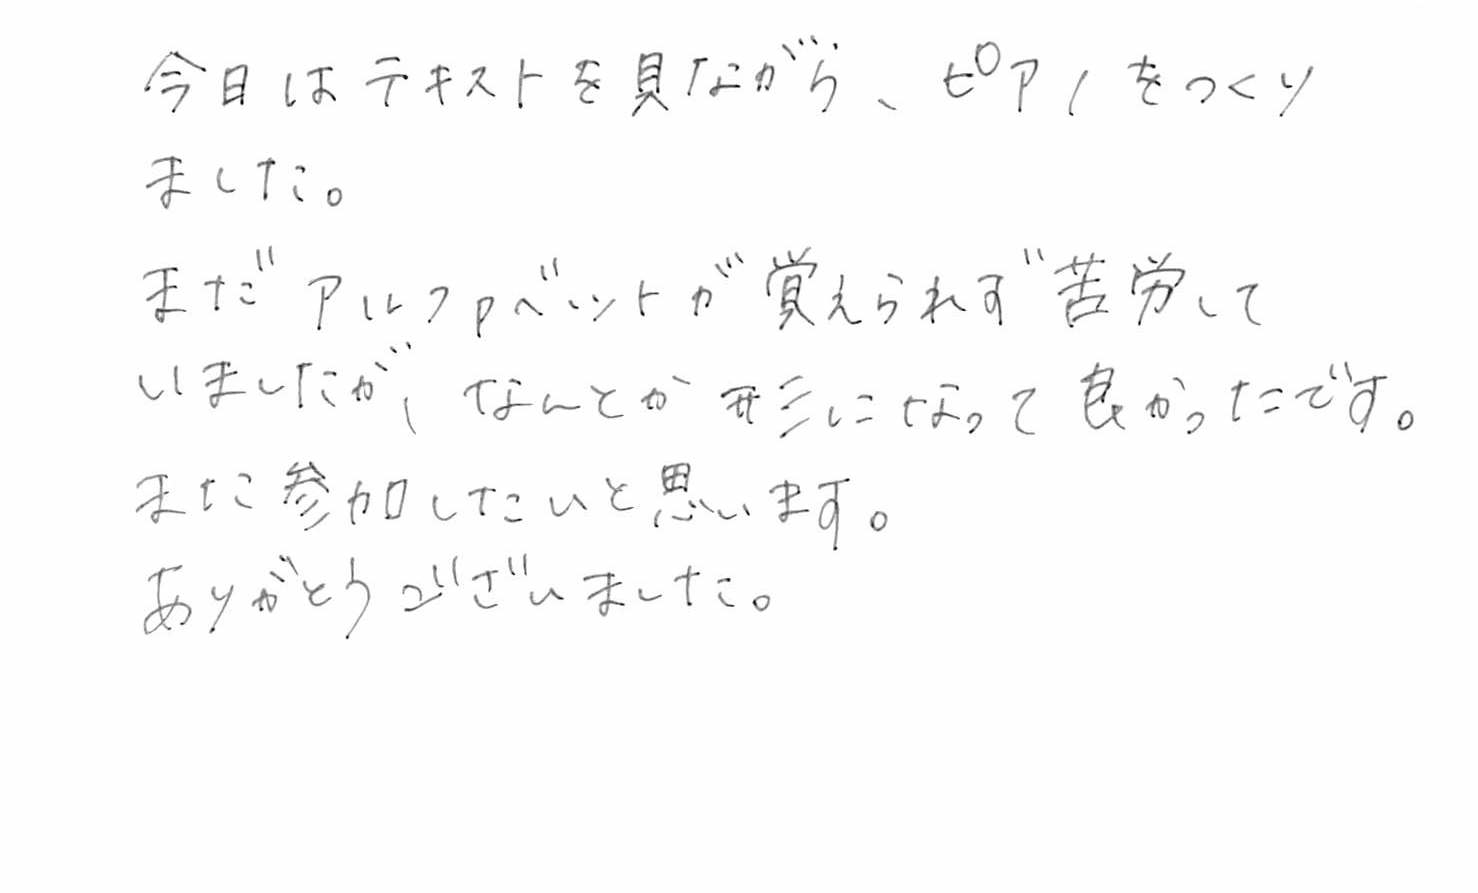 今日はテキストを見ながら、ピアノをつくり
ました。
まだアルファベットが覚えられず苦労して
いましたが、なんとか形になって良かったです。
また参加したいと思います。
ありがとうございました。